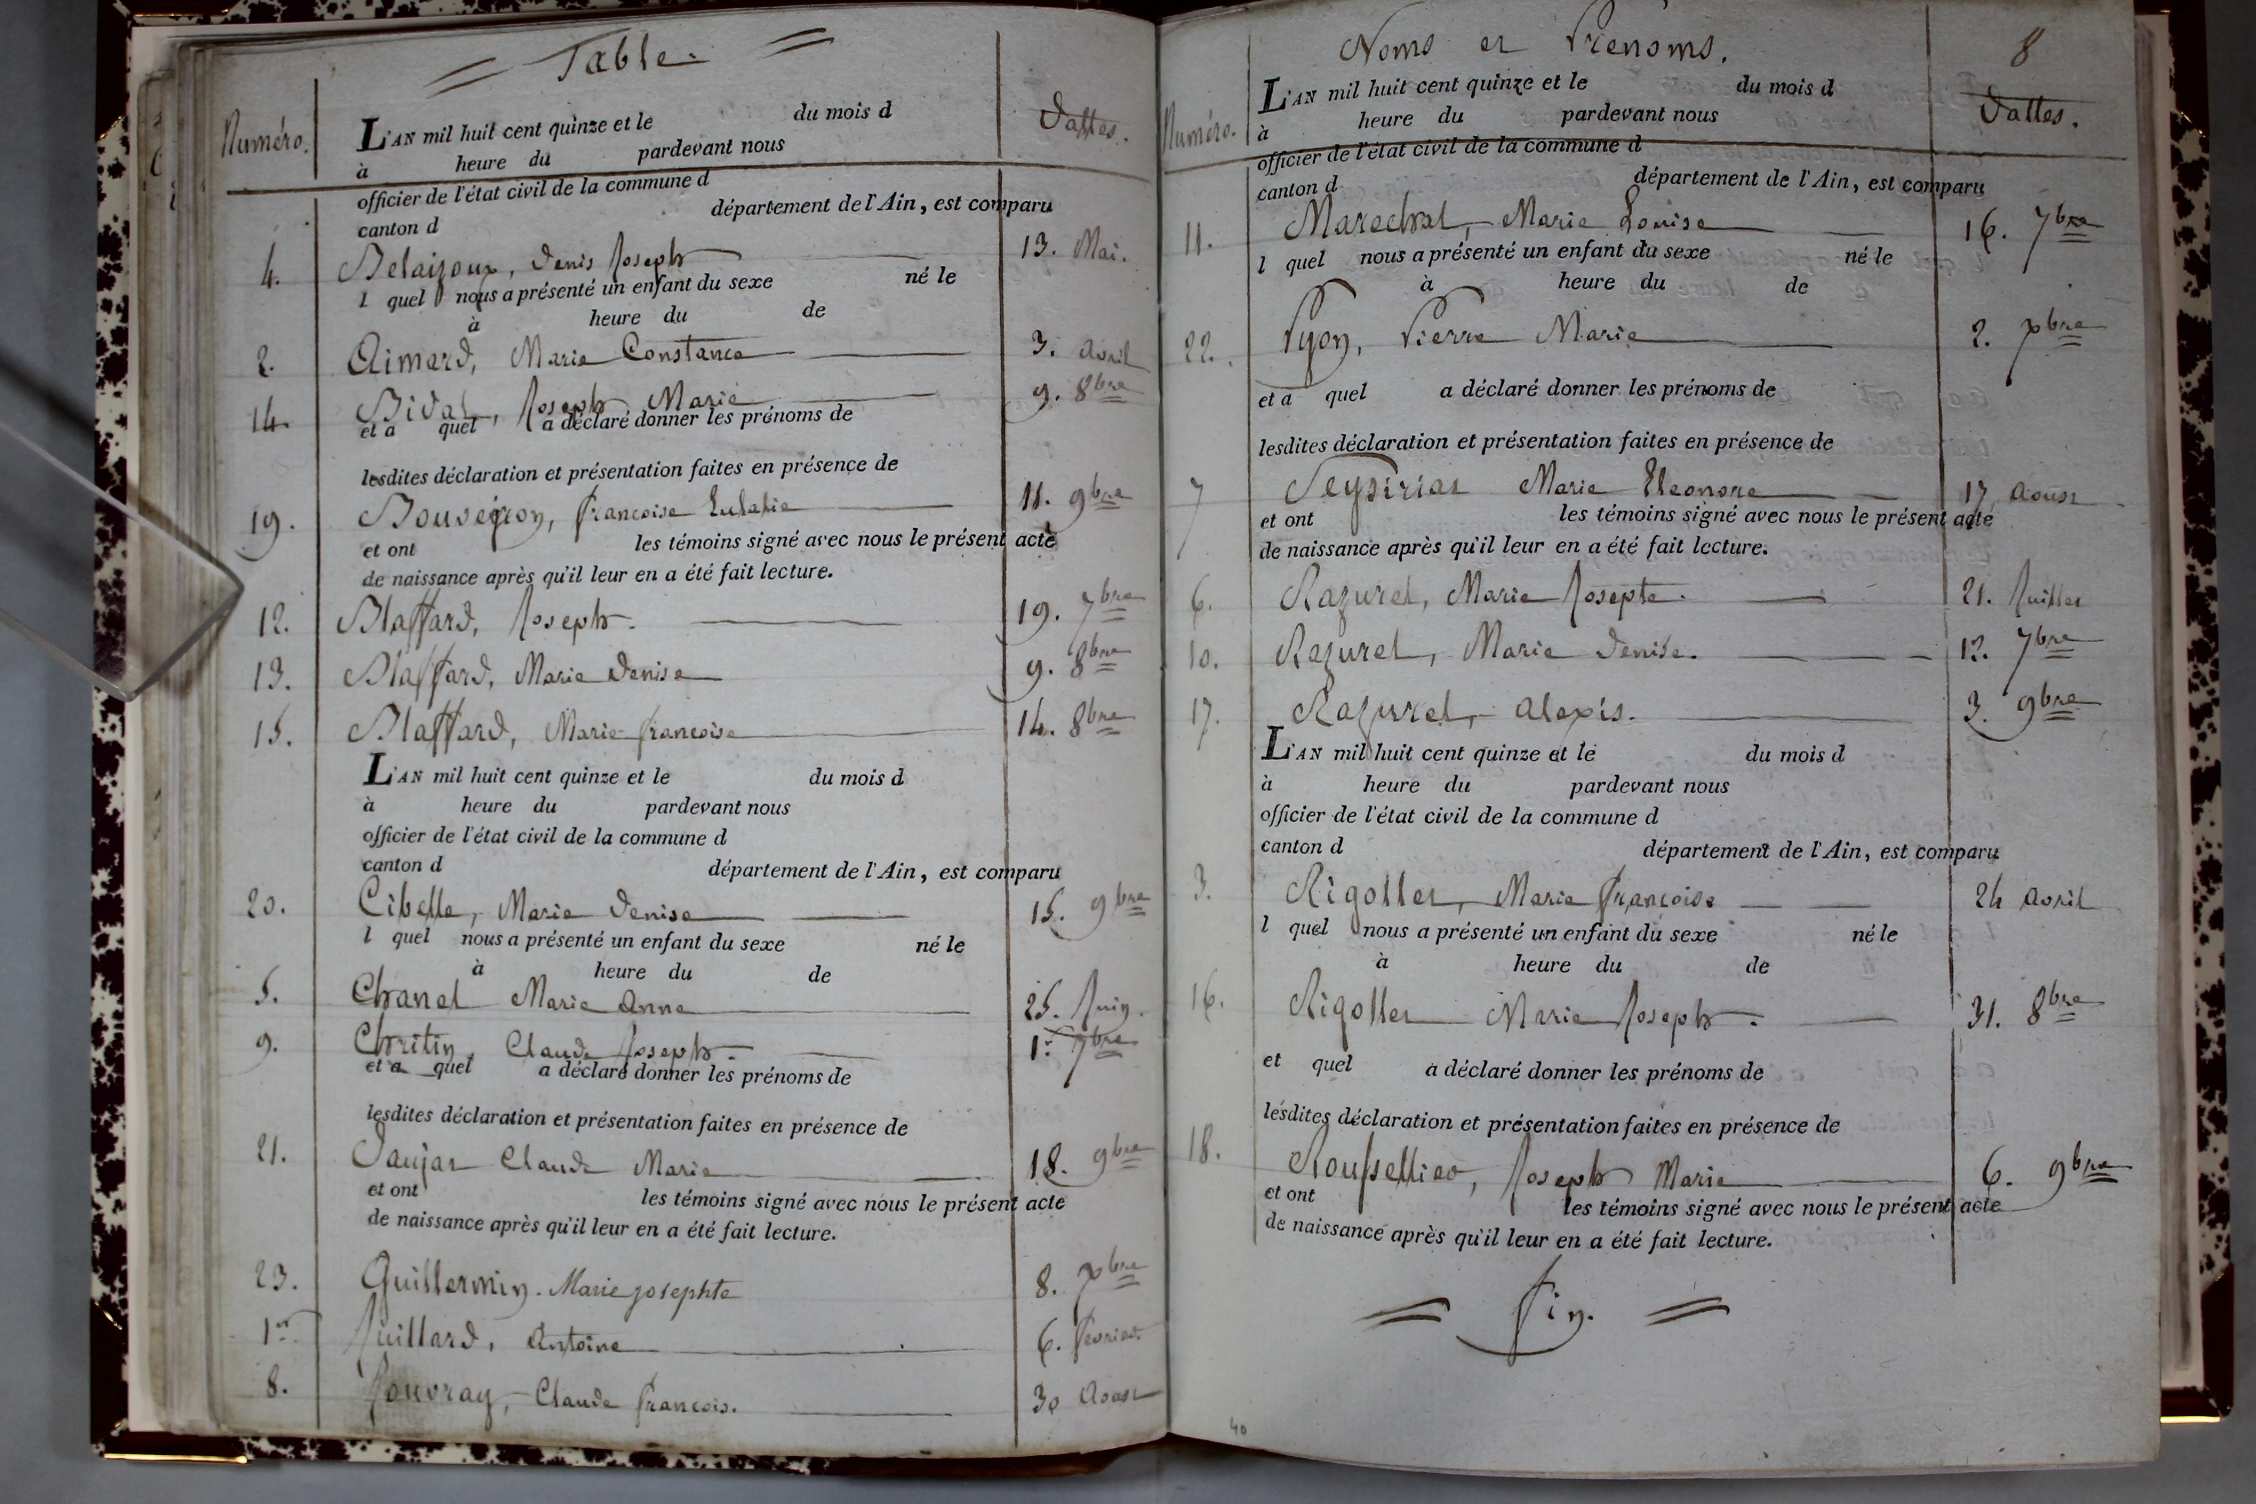 Table.
Numéro. L'AN mil huit cent quinze et le du mois d Dattes.
à heure du pardevant nous
officier de l'état civil de la commune d
canton d département de l'Ain, est comparu
4. Denis Joseph 13. Mai.
l quel nous a présenté un enfant du sexe né le
à heure du de
2. Aimard, Marie Constance 3. avril
14. Bidal, Joseph Marie 9. 8bre
et a quel a déclaré donner les prénoms de
lesdites déclaration et présentation faites en présence de
19. Bouveyron, francoise Eulalie 11. 9bre
et ont les témoins signé avec nous le présent acte
de naissance après qu'il leur en a été fait lecture.
12. Blaffard, Joseph. 19. 7bre
13. Blaffard, Marie Denise 9. 8bre
15. Blaffard, Marie francoise 14. 8bre
L'AN mil huit cent quinze et le du mois d
à heure du pardevant nous
officier de l'état civil de la commune d
canton d département de l'Ain, est comparu
20. Cibelle, Marie Denise 15. 9bre
l quel nous a présenté un enfant du sexe né le
à heure du de
5. Chanel Marie Anne 25. Juin.
9. Chritin, Claude Joseph. 1r. 7bre
et a quel a déclaré donner les prénoms de
lesdites déclaration et présentation faites en présence de
21. Daujat Claude Marie 18. 9bre
et ont les témoins signé avec nous le présent acte
de naissance après qu'il leur en a été fait lecture.
23. Guillermin. Marie josephte 8. Xbre
1er Juillard, Antoine 6. fevrier
8. Jouvray, Claude francois. 30 Aoust
Noms et Prenoms. 8
Numéro. L'AN mil huit cent quinze et le du mois d Dattes.
à heure du pardevant nous
officier de l'état civil de la commune d
canton d département de l'Ain, est comparu
11. Marechal, Marie Louise 16. 7bre
l quel nous a présenté un enfant du sexe né le
à heure du de
22. Pyon, Pierre Marie 2. Xbre
et a quel a déclaré donner les prénoms de
lesdites déclaration et présentation faites en présence de
7 Peysiriat Marie Eleonore 17 Aoust
et ont les témoins signé avec nous le présent acte
de naissance après qu'il leur en a été fait lecture.
6. Razurel, Marie Josepte. 21. Juillet
10. Razurel, Marie Denise. 12. 7bre
17. Razurel, Alexis. 3. 9bre
L'AN mil huit cent quinze et le du mois d
à heure du pardevant nous
officier de l'état civil de la commune d
canton d département de l'Ain, est comparu
3. Rigollet, Marie françoise 24 avril
l quel nous a présenté un enfant du sexe né le
à heure du de
16. Rigollet Marie Joseph. 31. 8bre
et quel a déclaré donner les prénoms de
lesdites déclaration et présentation faites en présence de
18. Roussellier, Joseph Marie 6. 9bre
et ont les témoins signé avec nous le présent acte
de naissance après qu'il leur en a été fait lecture.
fin.
40